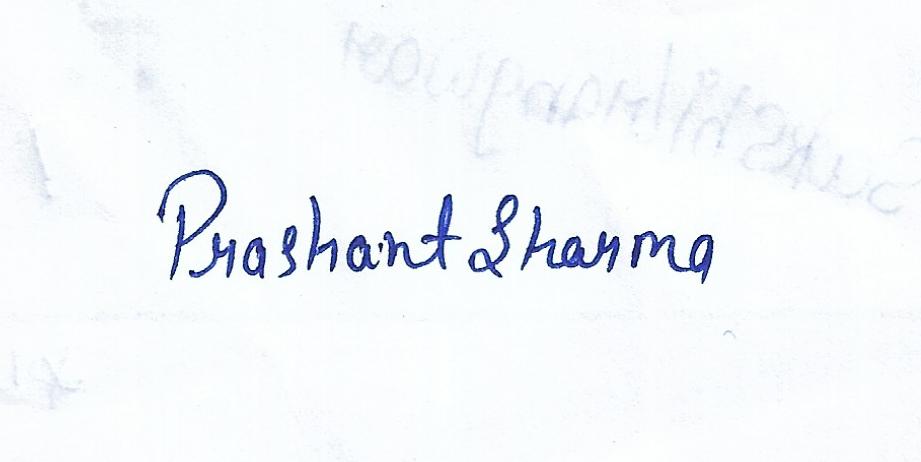 Prashant Sharma